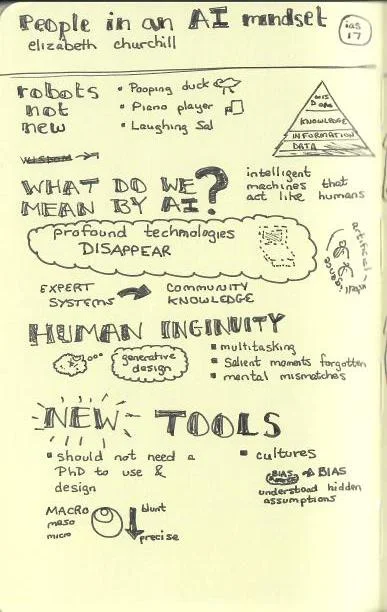 People in an AI mindset
elizabeth churchill
ias
17
robots
not
new
• Pooping duck
• Piano player
• Laughing Sal
WIS
DOM
KNOWLEDGE
INFORMATION
DATA
wisdom
WHAT DO WE
MEAN BY AI?
intelligent
machines that
act like humans
profound technologies
DISAPPEAR
artificial
EXPERT
SYSTEMS
COMMUNITY
KNOWLEDGE
HUMAN INGINUITY
generative
design
▪ multitasking
▪ Salient moments forgotten
▪ mental mismatches
NEW TOOLS
▪ should not need a
PhD to use &
design
▪ cultures
BIAS → BIAS
understood hidden
assumptions
MACRO
meso
micro
blunt
precise